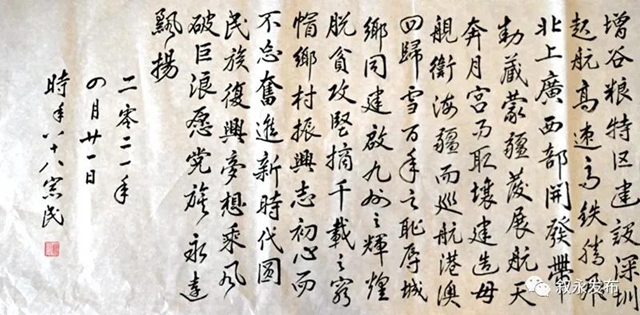 增谷粮特区建设深圳
起航高速高铁腾飛
北上廣西部開發帶
動藏蒙疆發展航天
奔月宫而取壤建造母
艦衛海疆而巡航港澳
回歸雪百年之恥辱城
鄉同建啟九州之輝煌
脱貧攻堅摘千載之窮
帽鄉村振興志初心而
不忘奮進新時代圆
民族復興夢想乘风
破巨浪愿党旗永遠
飄揚
二零二一年
四月廿一日
時年八十八宗民
叙永发布